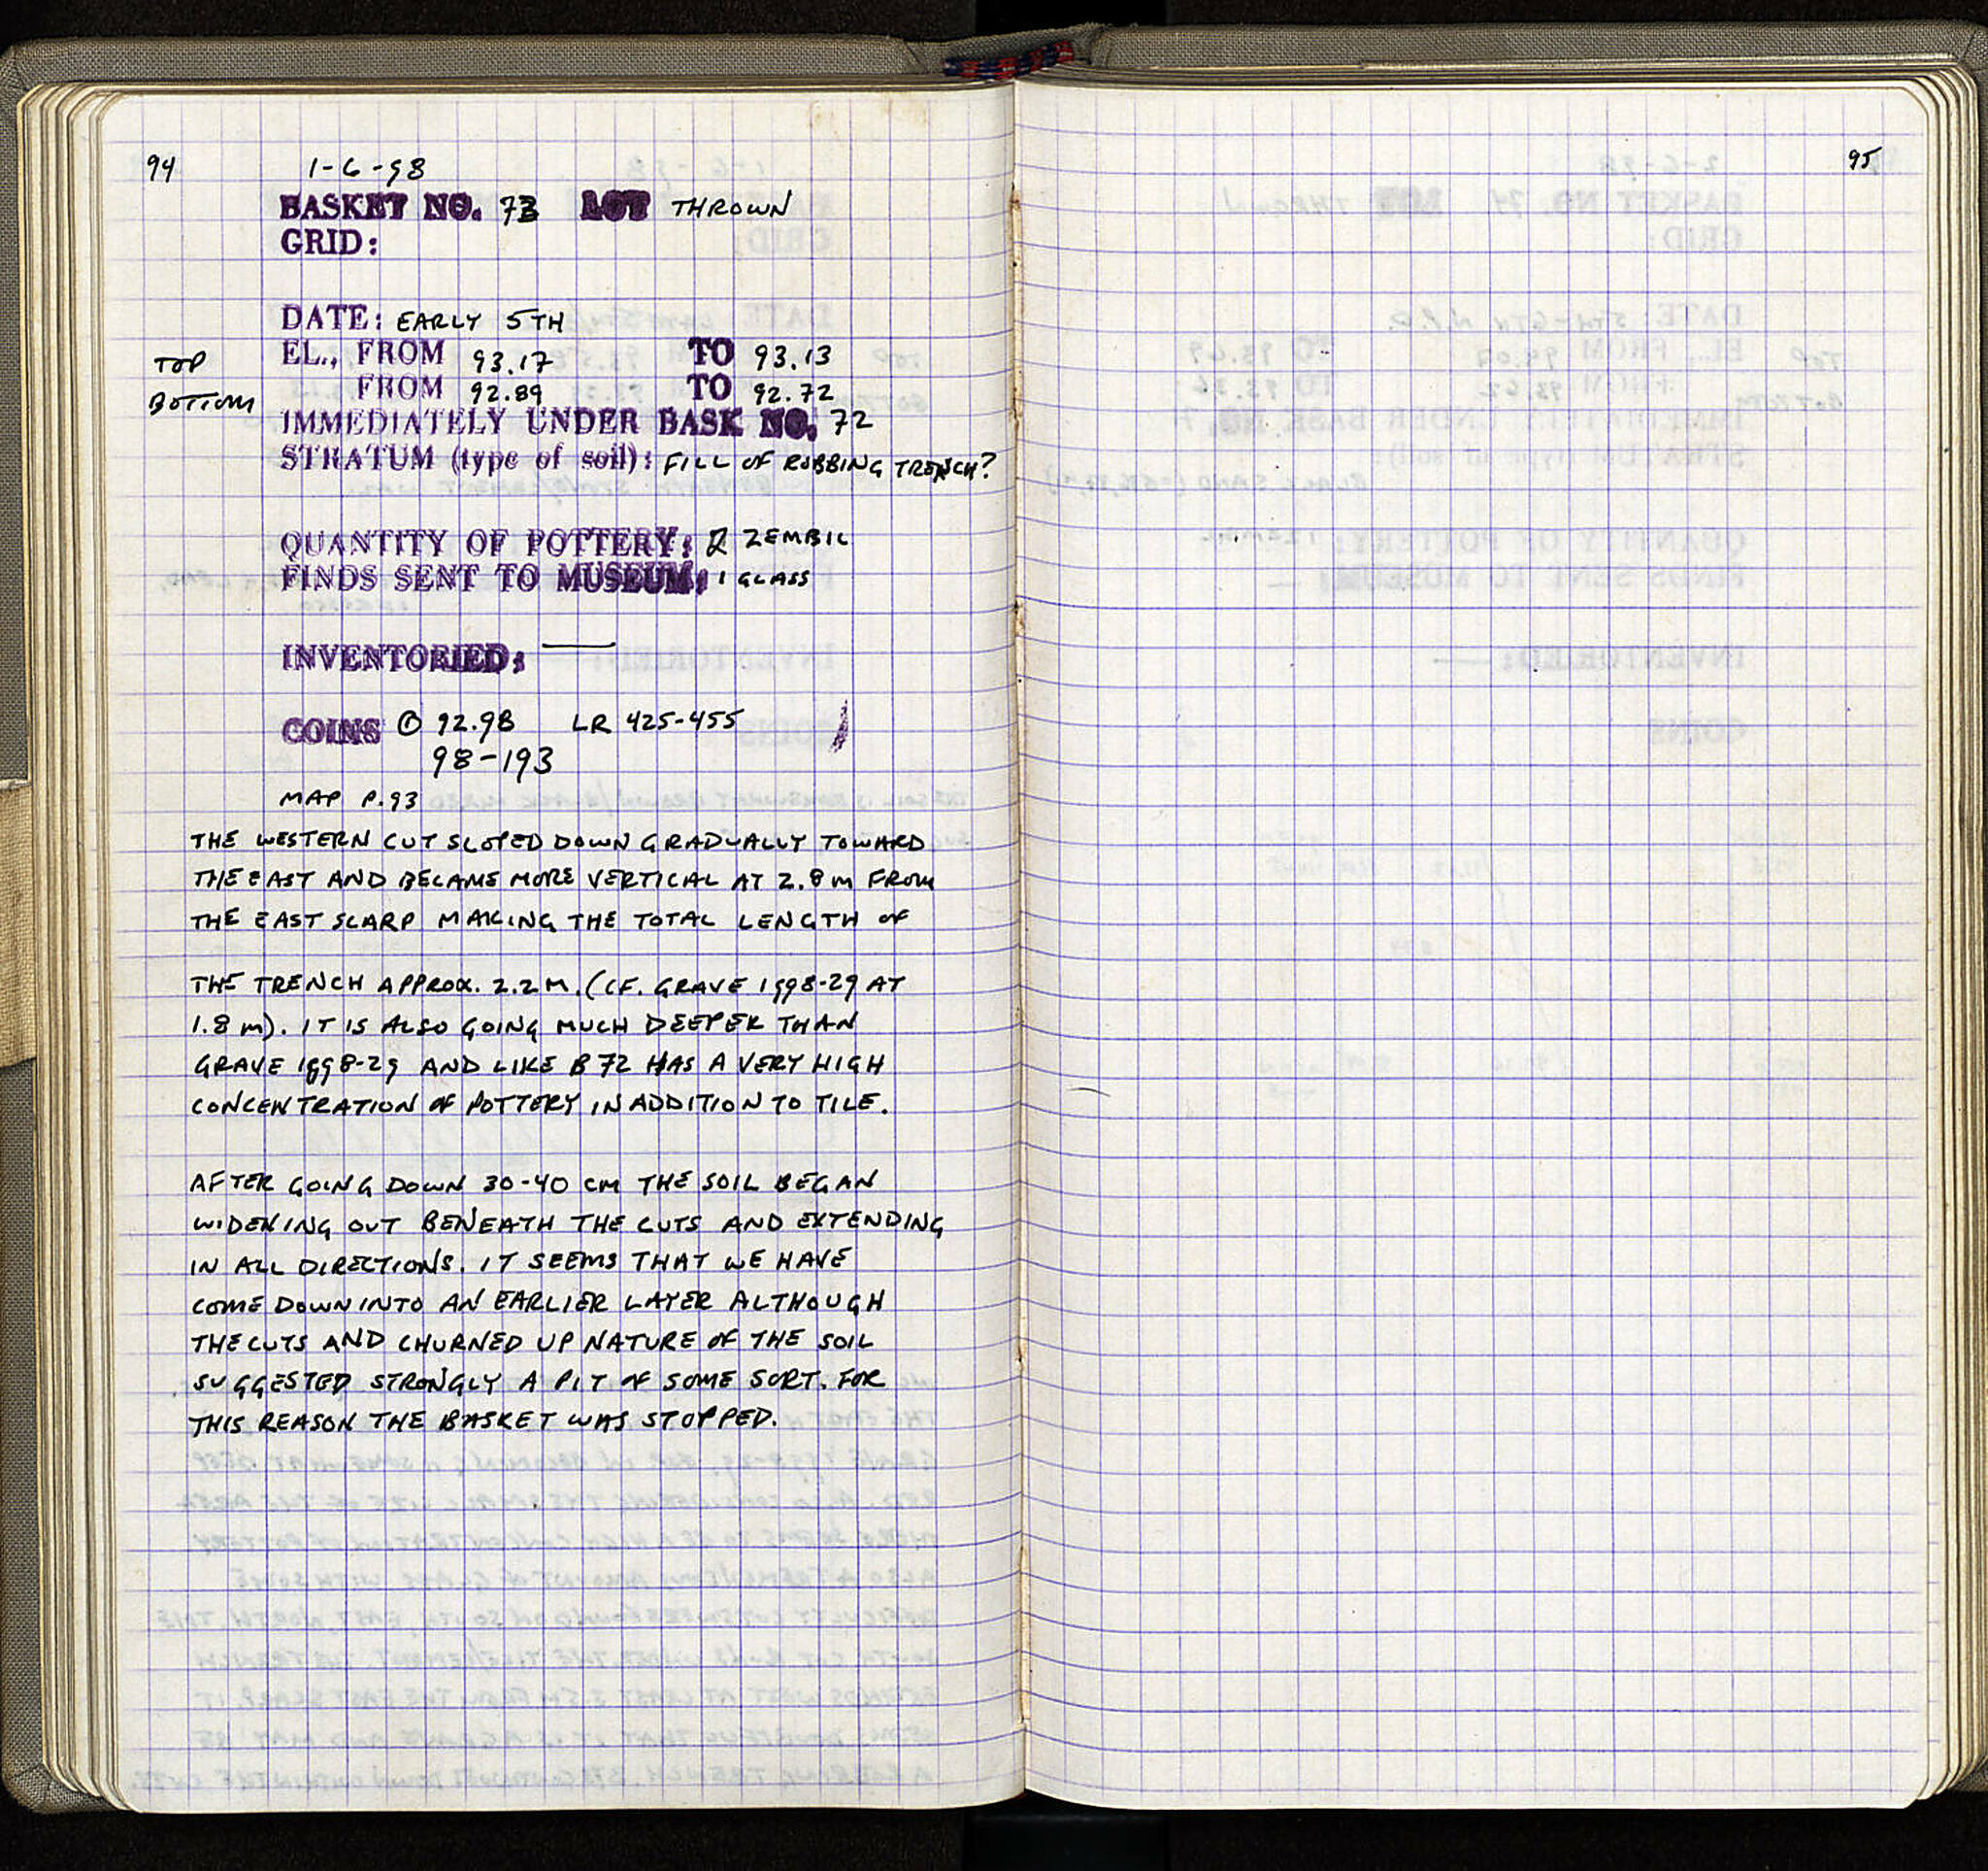 94 1-6-98
BASKET NO. 73 LOT THROWN
GRID:
DATE: EARLY 5TH
TOP EL., FROM 93.17 TO 93.13
BOTTOM FROM 92.89 TO 92.72
IMMEDIATELY UNDER BASK NO. 72
STRATUM (type of soil): FILL OF ROBBING TRENCH?
QUANTITY OF POTTERY: 2 ZEMBIL
FINDS SENT TO MUSEUM: 1 GLASS
INVENTORIED: —
COINS ① 92.98 LR 425-455
98-193
MAP P.93
THE WESTERN CUT SLOPED DOWN GRADUALLY TOWARD
THE EAST AND BECAME MORE VERTICAL AT 2.8 m FROM
THE EAST SCARP MAKING THE TOTAL LENGTH OF
THE TRENCH APPROX. 2.2 M. (CF. GRAVE 1998-29 AT
1.8 m). IT IS ALSO GOING MUCH DEEPER THAN
GRAVE 1998-29 AND LIKE B 72 HAS A VERY HIGH
CONCENTRATION OF POTTERY IN ADDITION TO TILE.
AFTER GOING DOWN 30-40 CM THE SOIL BEGAN
WIDENING OUT BENEATH THE CUTS AND EXTENDING
IN ALL DIRECTIONS. IT SEEMS THAT WE HAVE
COME DOWN INTO AN EARLIER LAYER ALTHOUGH
THE CUTS AND CHURNED UP NATURE OF THE SOIL
SUGGESTED STRONGLY A PIT OF SOME SORT. FOR
THIS REASON THE BASKET WAS STOPPED.
95